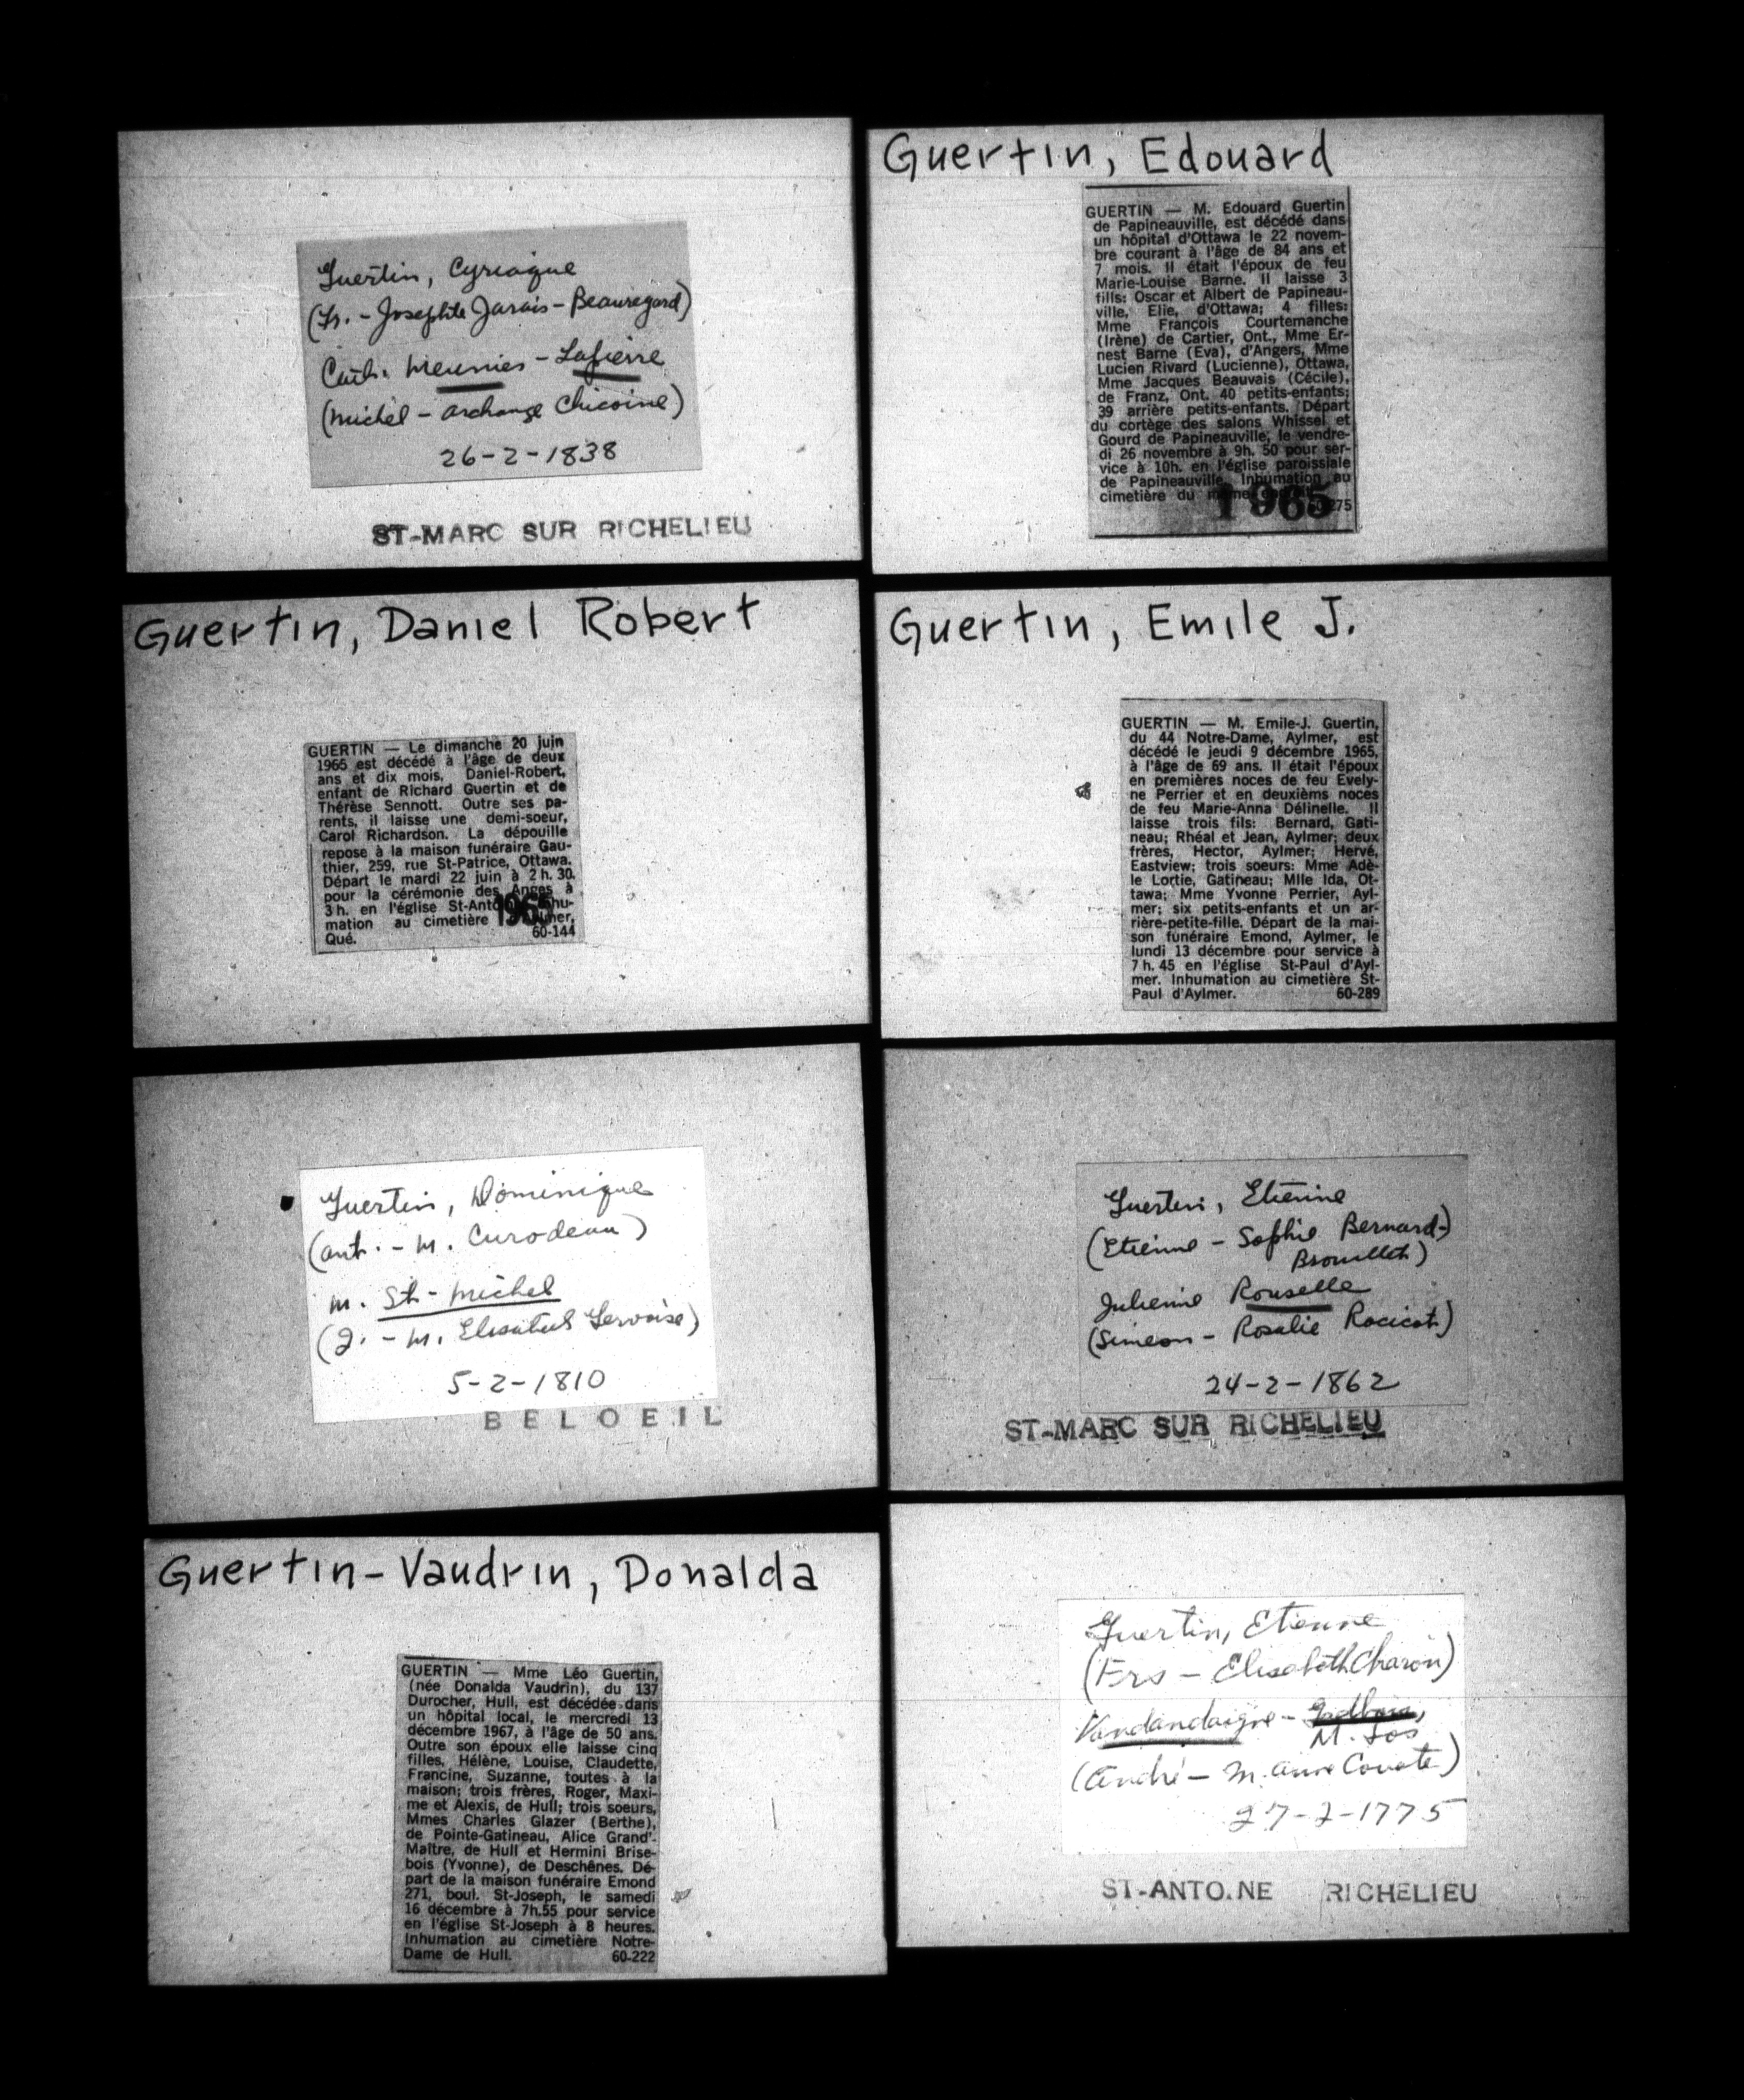 Guertin, Cyriaque
(Fr. - Josephte Jarais - Beauregard)
Cath. Meunier - Lapierre
(Michel - Archange Chicoine)
26-2-1838
ST-MARC SUR RICHELIEU
Guertin, Daniel Robert
GUERTIN — Le dimanche 20 juin
1965 est décédé à l'âge de deux
ans et dix mois, Daniel-Robert,
enfant de Richard Guertin et de
Thérèse Sennott. Outre ses pa-
rents, il laisse une demi-soeur,
Carol Richardson. La dépouille
repose à la maison funéraire Gau-
thier, 259, rue St-Patrice, Ottawa.
Départ le mardi 22 juin à 2 h. 30.
pour la cérémonie des Anges à
3 h. en l'église
mation au cimetière
Qué. 60-144
1965
Guertin, Dominique
(Ant. - M. Curodeau)
M. St-Michel
(J. - M. Elisabeth Gervaise)
5-2-1810
BELOEIL
Guertin-Vaudrin, Donalda
GUERTIN — Mme Léo Guertin,
(née Donalda Vaudrin), du 137
Durocher, Hull, est décédée dans
un hôpital local, le mercredi 13
décembre 1967, à l'âge de 50 ans.
Outre son époux elle laisse cinq
filles, Hélène, Louise, Claudette,
Francine, Suzanne, toutes à la
maison; trois frères, Roger, Maxi-
me et Alexis, de Hull; trois soeurs,
Mmes Charles Glazer (Berthe),
de Pointe-Gatineau, Alice Grand'-
Maître, de Hull et Hermini Brise-
bois (Yvonne), de Deschênes. Dé-
part de la maison funéraire Emond
271, boul. St-Joseph, le samedi
16 décembre à 7h.55 pour service
en l'église St-Joseph à 8 heures.
Inhumation au cimetière Notre-
Dame de Hull. 60-222
Guertin, Edouard
GUERTIN — M. Edouard Guertin
de Papineauville, est décédé dans
un hôpital d'Ottawa le 22 novem-
bre courant à l'âge de 84 ans et
7 mois. Il était l'époux de feu
Marie-Louise Barne. Il laisse 3
fills: Oscar et Albert de Papineau-
ville, Elie, d'Ottawa; 4 filles:
Mme François Courtemanche
(Irène) de Cartier, Ont., Mme Er-
nest Barne (Eva), d'Angers, Mme
Lucien Rivard (Lucienne), Ottawa,
Mme Jacques Beauvais (Cécile),
de Franz, Ont. 40 petits-enfants;
39 arrière petits-enfants. Départ
du cortège des salons Whissel et
Gourd de Papineauville, le vendre-
di 26 novembre à 9h. 50 pour ser-
vice à 10h. en l'église paroissiale
de Papineauville. Inhumation au
cimetière du même
1965
Guertin, Emile J.
GUERTIN — M. Emile-J. Guertin,
du 44 Notre-Dame, Aylmer, est
décédé le jeudi 9 décembre 1965,
à l'âge de 69 ans. Il était l'époux
en premières noces de feu Evely-
ne Perrier et en deuxièms noces
de feu Marie-Anna Délinelle. Il
laisse trois fils: Bernard, Gati-
neau; Rhéal et Jean, Aylmer; deux
frères, Hector, Aylmer; Hervé,
Eastview; trois soeurs: Mme Adè-
le Lortie, Gatineau; Mlle Ida, Ot-
tawa; Mme Yvonne Perrier, Ayl-
mer; six petits-enfants et un ar-
rière-petite-fille. Départ de la mai-
son funéraire Emond, Aylmer, le
lundi 13 décembre pour service à
7 h. 45 en l'église St-Paul d'Ayl-
mer. Inhumation au cimetière St-
Paul d'Aylmer. 60-289
Guertin, Etienne
(Etienne - Sophie Bernard-
Brouillet)
Julienne Rouselle
(Simeon - Rosalie Racicot)
24-2-1862
ST-MARC SUR RICHELIEU
Guertin, Etienne
(Frs - Elisabeth Charon)
Vandandaigne -
M. Jos
(André - M. Anne Couote)
27-2-1775
ST-ANTOINE RICHELIEU